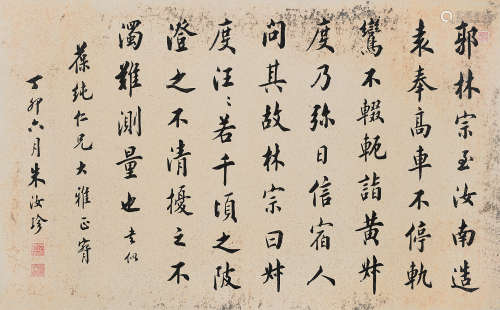 郭林宗至汝南造
袁奉高車不停軌
鸞不輟軛詣黃叔
度乃弥日信宿人
問其故林宗曰叔
度汪〻若千頃之陂
澄之不清擾之不
濁難測量也 書似
葆純仁兄大雅正
丁卯六月朱汝珍